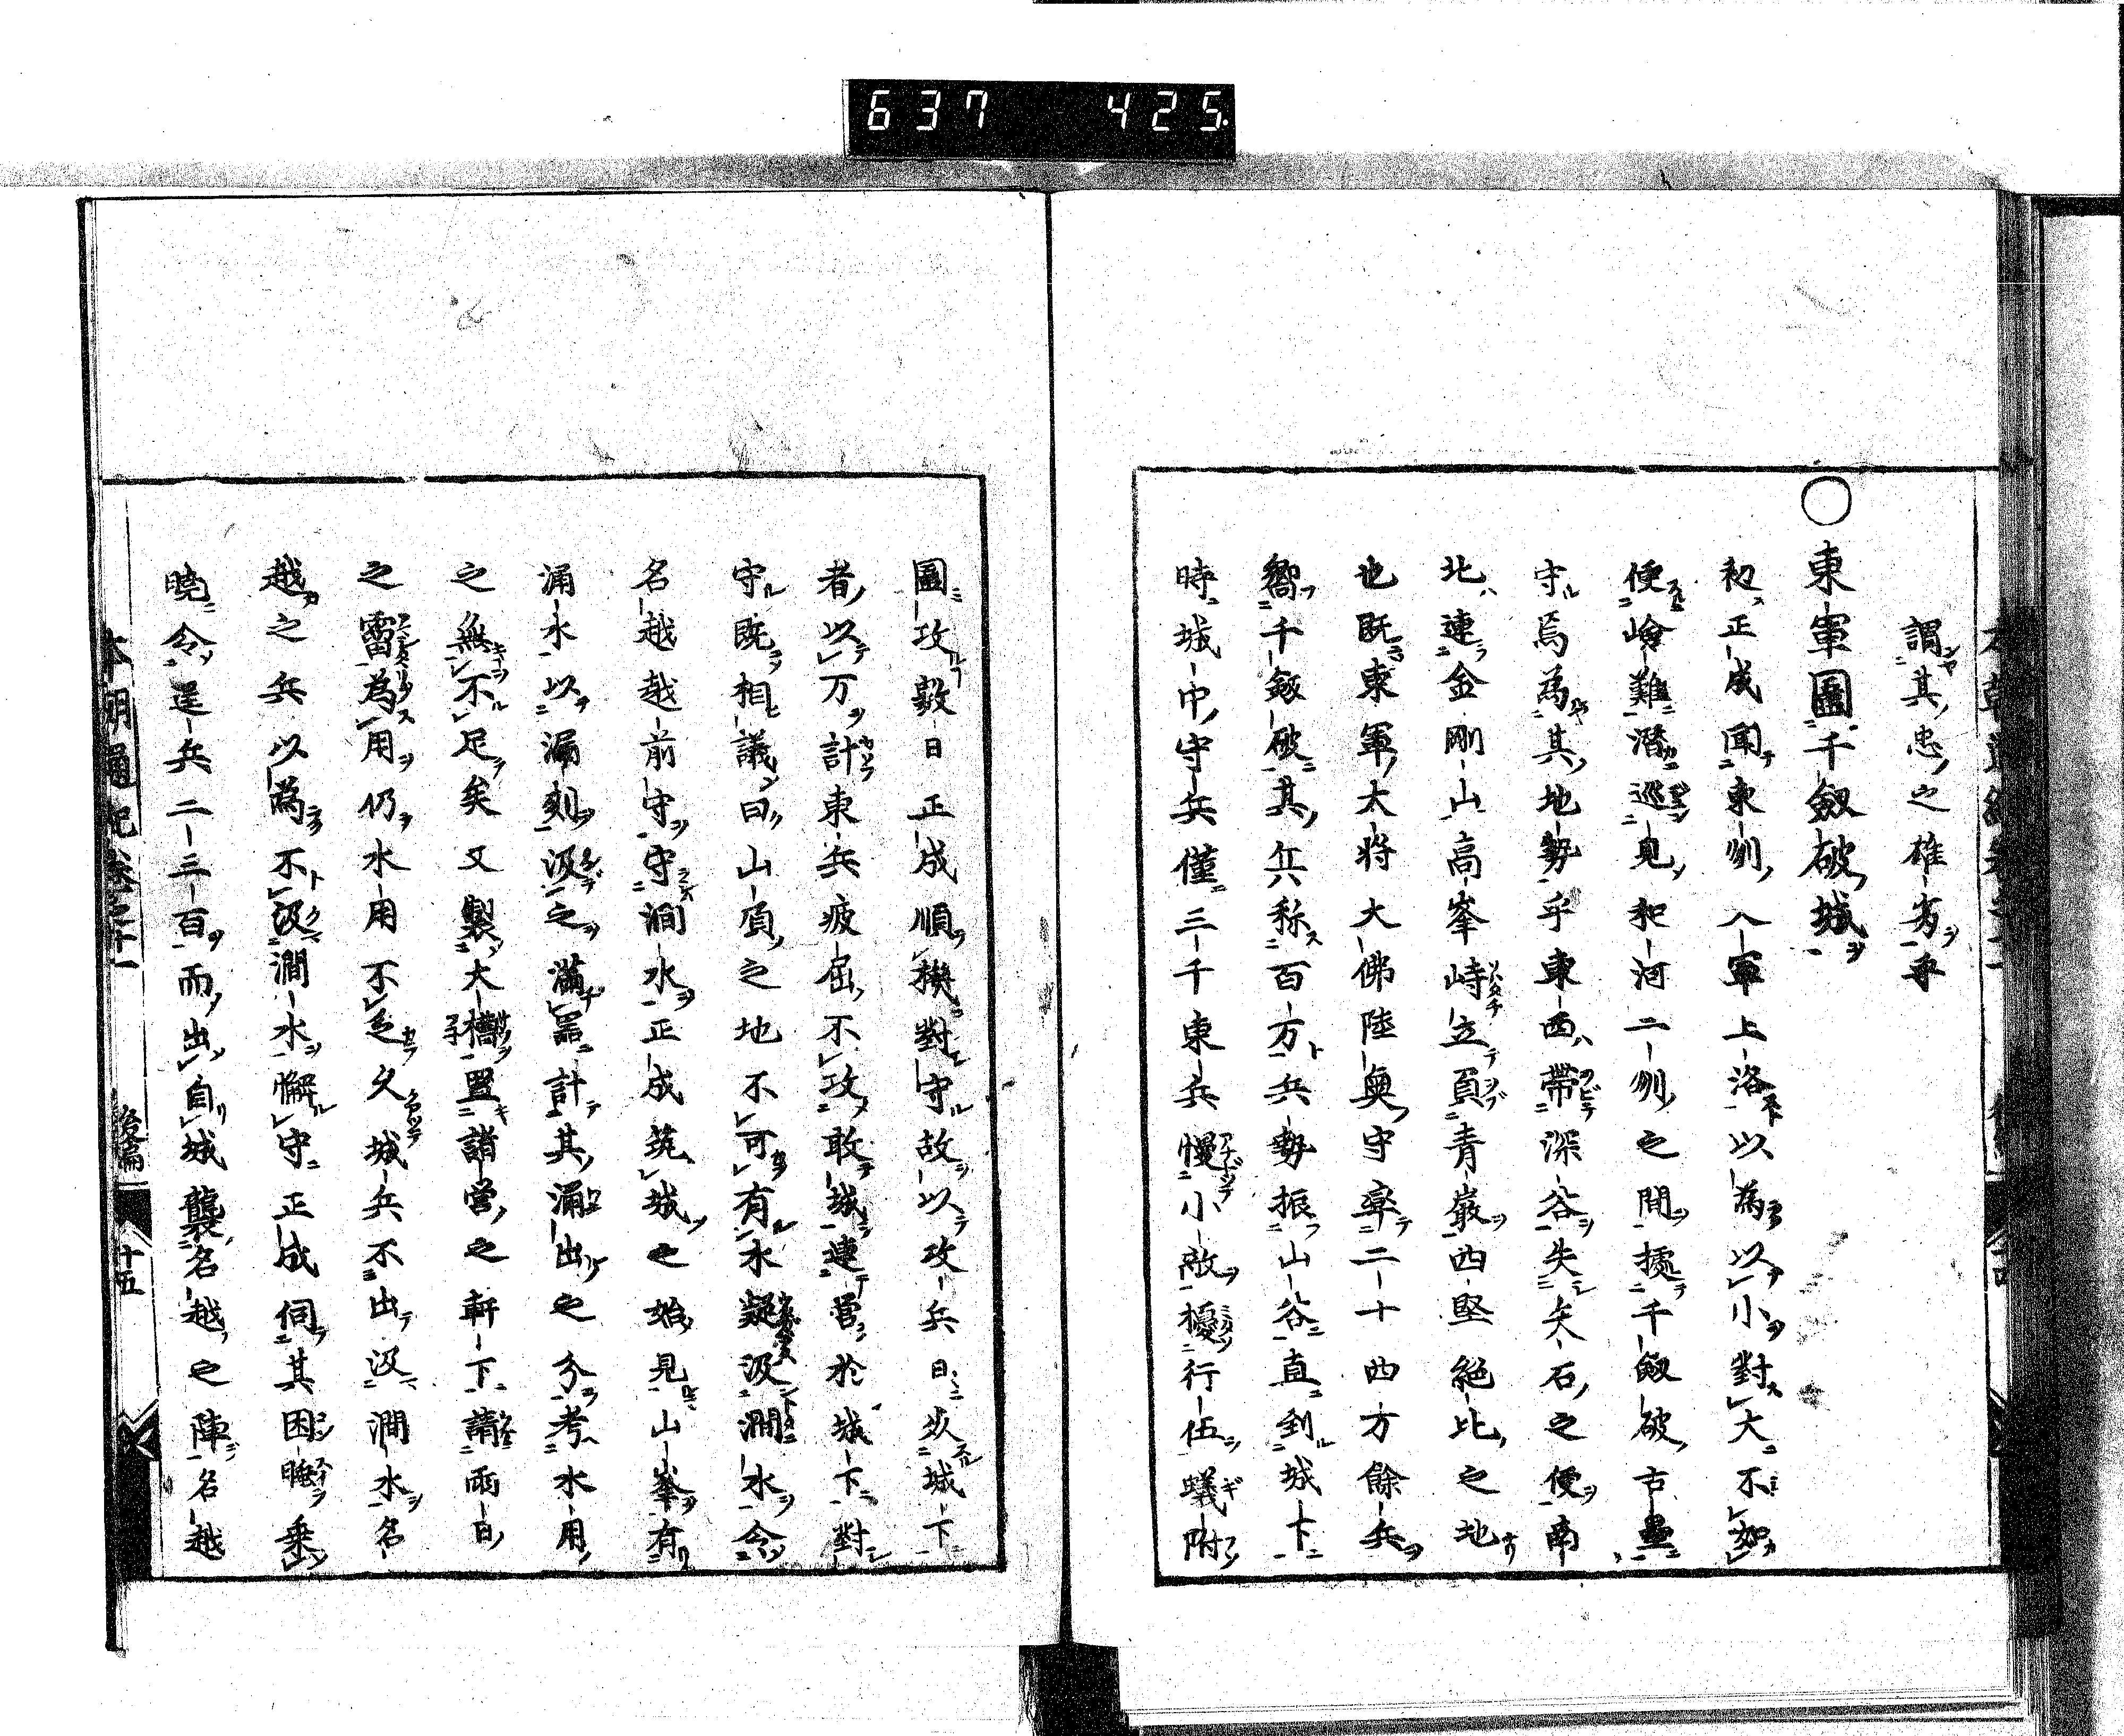 637 425
謂其忠之雄劣乎
○東軍圍千劔破城
初正成聞東州八軍上洛以為以小對大不如
便嶮難潜巡見和河二州之間據千劔破古壘
守焉為其地勢乎東西帶深谷失矢石之便南
北連金剛山高峯峙立頁青巌西堅絶比之地
也既東軍大将大佛陸奥守率二十四方餘兵
嚮千劔破其兵称百万兵勢振山谷直到城下
時城中守兵僅三千東兵慢小敵擾行伍蟻附
圍攻數日正成順機對守故以攻兵日災城下
者以万計東兵疲屈不攻敢城連営於城下對
守既相議曰山頂之地不可有水疑汲澗水令
名越越前守守澗水正成築城之始見山峯有
涌水以漏刻汲之満噐計其涌出之分考水用
之無不足矣又製大槽置諸営之軒下請雨日
之霤為用仍水用不乏久城兵不出汲澗水名
越之兵以為不汲澗水懈守正成伺其困睡乗
暁令逞兵二三百而出自城襲名越之陣名越
本朝通紀巻之十一 後篇 十五